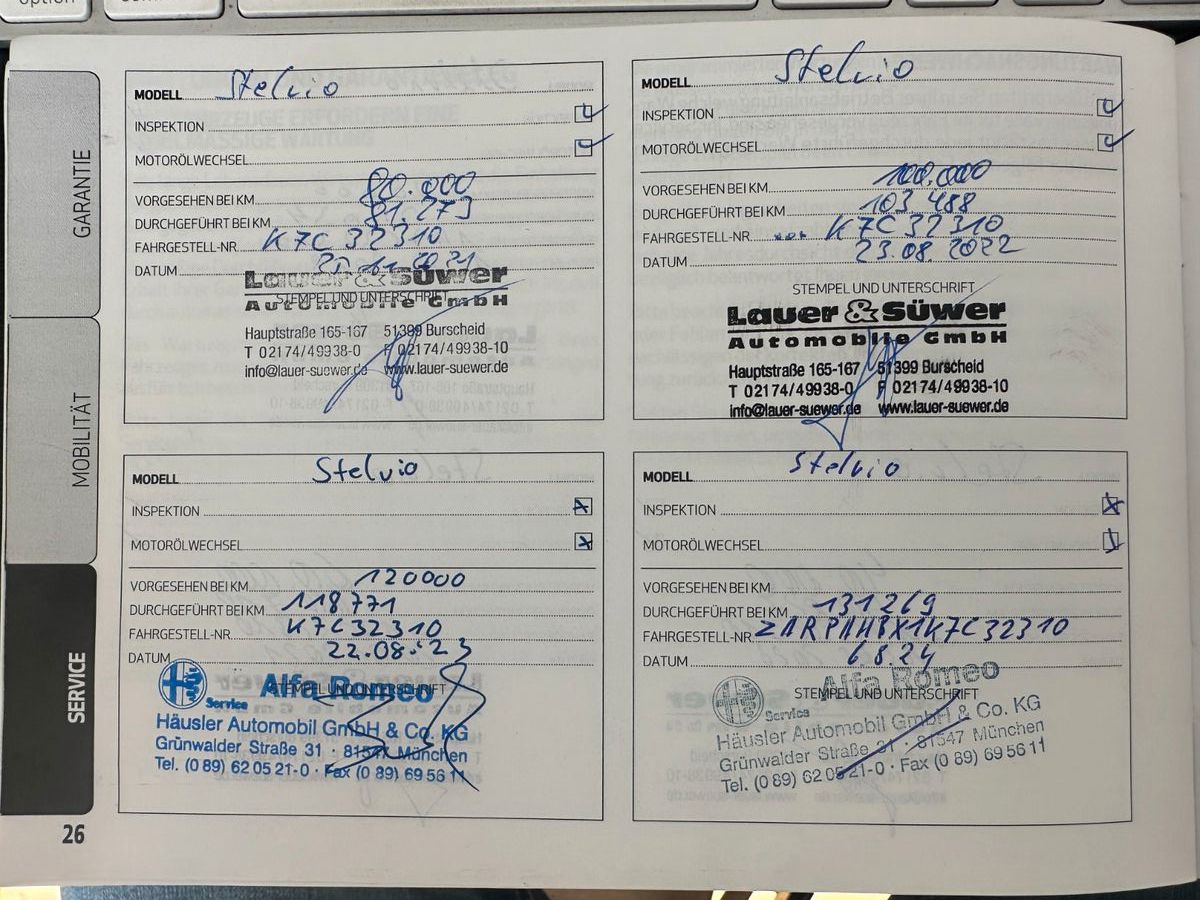 option
GARANTIE
MOBILITÄT
SERVICE
MODELL Stelvio
INSPEKTION
MOTORÖLWECHSEL
VORGESEHEN BEI KM 80.000
DURCHGEFÜHRT BEI KM 81.273
FAHRGESTELL-NR. K7C32310
DATUM 2021
STEMPEL UND UNTERSCHRIFT
Lauer & Süwer
Automobile GmbH
Hauptstraße 165-167 51399 Burscheid
T 02174/49938-0 F 02174/49938-10
info@lauer-suewer.de www.lauer-suewer.de
MODELL Stelvio
INSPEKTION
MOTORÖLWECHSEL
VORGESEHEN BEI KM 100.000
DURCHGEFÜHRT BEI KM 103488
FAHRGESTELL-NR. K7C32310
DATUM 23.08.2022
STEMPEL UND UNTERSCHRIFT
Lauer & Süwer
Automobile GmbH
Hauptstraße 165-167 51399 Burscheid
T 02174/49938-0 F 02174/49938-10
info@lauer-suewer.de www.lauer-suewer.de
MODELL Stelvio
INSPEKTION
MOTORÖLWECHSEL
VORGESEHEN BEI KM 120000
DURCHGEFÜHRT BEI KM 118771
FAHRGESTELL-NR. K7C32310
DATUM 22.08.23
STEMPEL UND UNTERSCHRIFT
Alfa Romeo
Service
Häusler Automobil GmbH & Co. KG
Grünwalder Straße 31 · 81547 München
Tel. (0 89) 62 05 21-0 · Fax (0 89) 69 56 11
MODELL Stelvio
INSPEKTION
MOTORÖLWECHSEL
VORGESEHEN BEI KM
DURCHGEFÜHRT BEI KM 131269
FAHRGESTELL-NR. ZARPAHBX1K7C32310
DATUM 6.8.24
STEMPEL UND UNTERSCHRIFT
Alfa Romeo
Service
Häusler Automobil GmbH & Co. KG
Grünwalder Straße 31 · 81547 München
Tel. (0 89) 62 05 21-0 · Fax (0 89) 69 56 11
26